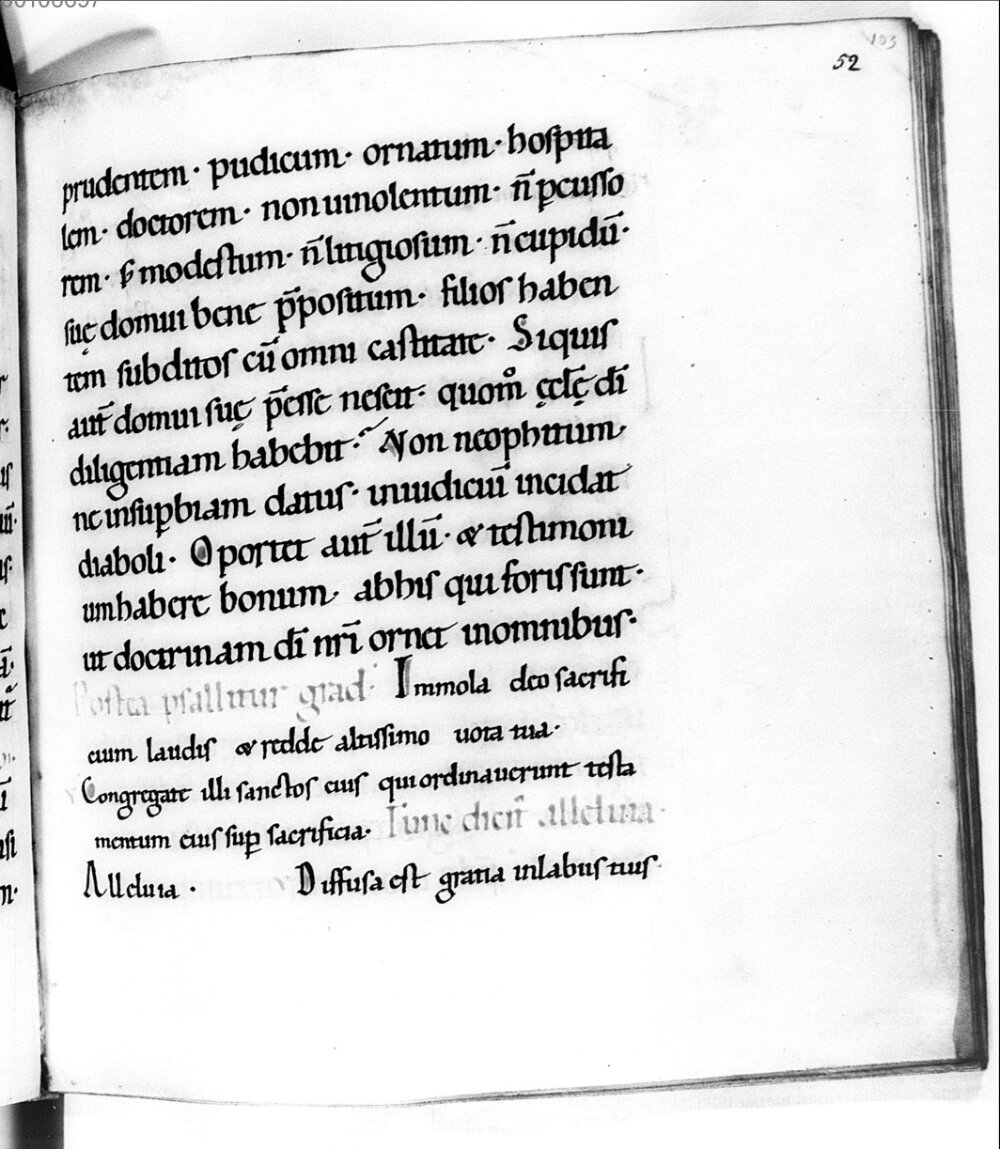 103
52
prudentem · pudicum · ornatum · hospita
lem · doctorem · non uinolentum · n̄ p̱cusso
rem · s; modestum · n̄ litigiosum · n̄ cupidū ·
suę domui bene p̄positum · filios haben
tem subditos cū omni castitate · Siquis
aut̄ domui suę p̄esse nescit · quom̊ ęcłę dī
diligentiam habebit · Non neophitum
ne insup̱biam datus · iniudiciū incidat
diaboli · Oportet aut̄ illū · & testimoni
umhabere bonum · abhis qui foris sunt ·
ut doctrinam dī nr̄i ornet inomnibus ·
Postea psallitur grad · Immola deo sacrifi
cium laudis & redde altissimo uota tua ·
Congregate illi sanctos eius qui ordinauerunt testa
mentum eius sup̱ sacrificia · Tunc dicit̄ alleluia ·
Alleluia · Diffusa est gratia inlabiis tuis ·